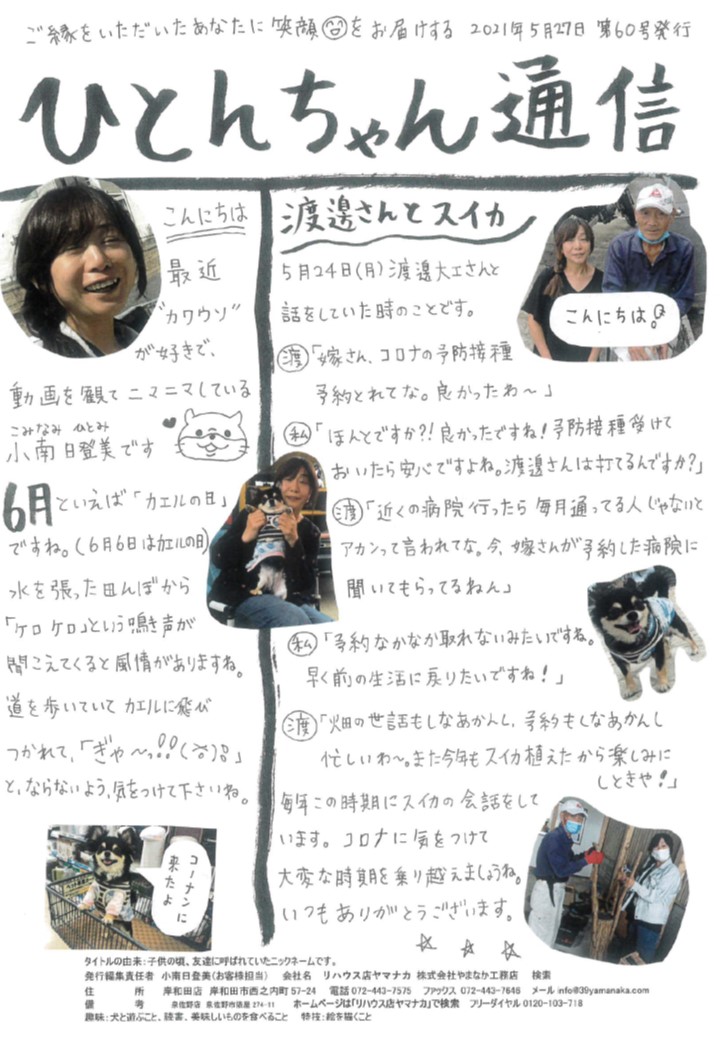 ご縁をいただいたあなたに笑顔をお届けする 2021年5月27日 第60号発行
ひとんちゃん通信
こんにちは
最近
"カワウソ"
が好きで、
動画を観てニマニマしている
こみなみ ひとみ
小南日登美です
6月といえば「カエルの日」
ですね。(6月6日はカエルの日)
水を張った田んぼから
「ケロケロ」という鳴き声が
聞こえてくると風情がありますね。
道を歩いていてカエルに飛び
つかれて、「ぎゃ〜っ!!
と、ならないよう、気をつけて下さいね。
コーナンに
来たよ
渡邉さんとスイカ
こんにちは。
5月24日(月)渡邉大工さんと
話をしていた時のことです。
渡「嫁さん、コロナの予防接種
予約とれてな。良かったわ〜」
私「ほんとですか?!良かったですね!予防接種受けて
おいたら安心ですよね。渡邉さんは打てるんですか?」
渡「近くの病院行ったら毎月通ってる人じゃないと
アカンって言われてな。今、嫁さんが予約した病院に
聞いてもらってるねん」
私「予約なかなか取れないみたいですね。
早く前の生活に戻りたいですね!」
渡「畑の世話もしなあかんし、予約もしなあかんし
忙しいわ〜。また今年もスイカ植えたから楽しみに
しときや!」
毎年この時期にスイカの会話をして
います。コロナに気をつけて
大変な時期を乗り越えましょうね。
いつもありがとうございます。
タイトルの由来:子供の頃、友達に呼ばれていたニックネームです。
発行編集責任者 小南日登美(お客様担当) 会社名 リハウス店ヤマナカ 株式会社やまなか工務店 検索
住 所 岸和田店 岸和田市西之内町57-24 電話072-443-7575 ファックス 072-443-7646 メールinfo@39yamanaka.com
備 考 泉佐野店 泉佐野市 274-11 ホームページは「リハウス店ヤマナカ」で検索 フリーダイヤル 0120-103-718
趣味:犬と遊ぶこと、読書、美味しいものを食べること 特技:絵を描くこと